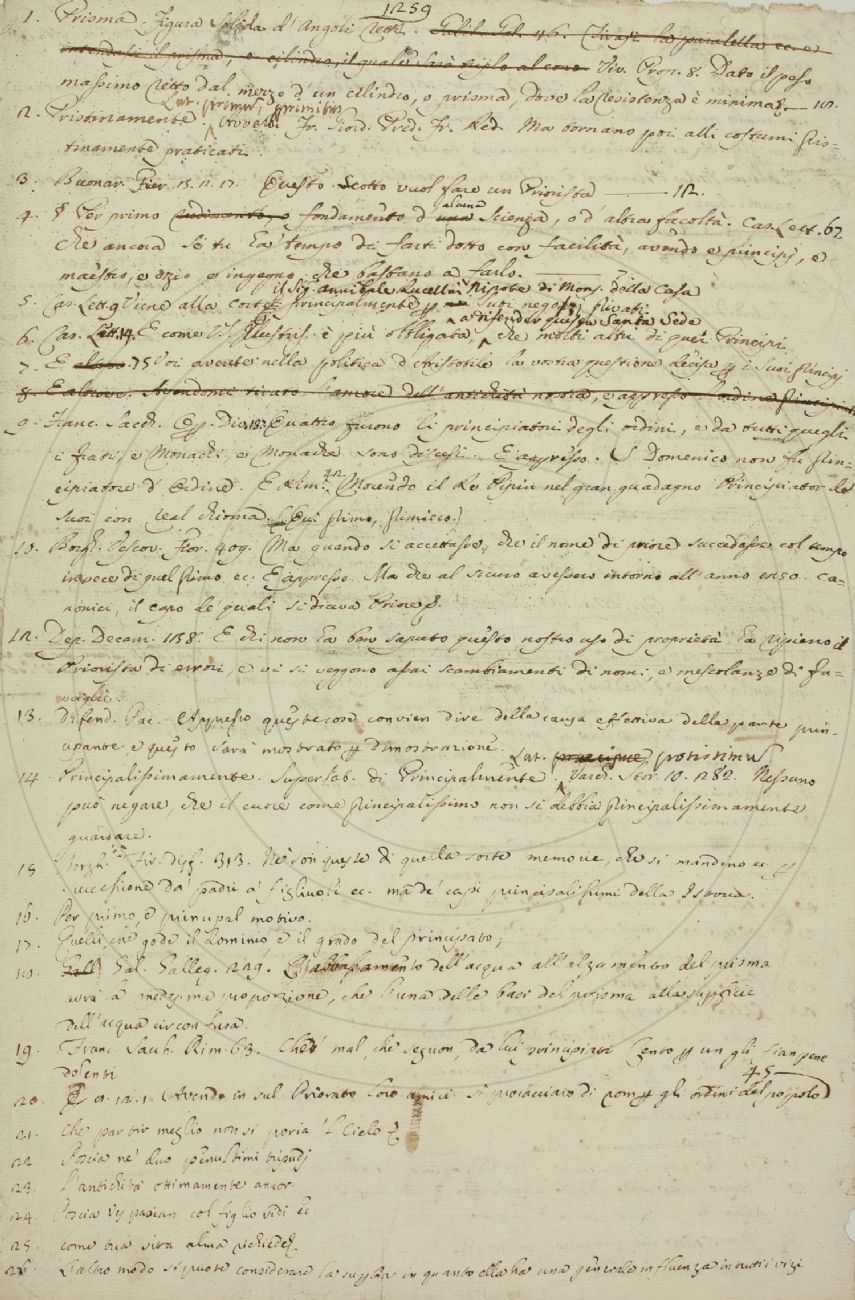 1259
1. Prisma. Figura solida d'Angoli retti. Galil. Gal. 46. ec. o
intendasi il prisma, o cilindro, il quale sarà al cono. Viv. Prop. 8. Dato il peso
massimo retto dal mezzo d'un cilindro, o prisma, dove la resistenza è minima ec. — 10.
Lat. primus, primitus
2. Pristinamente. Avverb. Fr. Giord. Pred. Fr. Red. Ma tornano poi alli costumi pris-
tinamente praticati.
3. Buonar. Fier. Questo Scotto vuol fare un Priorista — 12.
alcuna
4. § Per primo rudimento, o fondamento d' una scienza, o d'altra facoltà. Cas. Lett. 62
Che ancora se' tu a tempo di farti dotto con facilità, avendo e principj, e
maestro, e ozio, e ingegno, che bastano a farlo. —
il Sig. Annibale Rucellai Nipote di Mons. della Casa
5. Cas. Lett. 9 Viene alla corte principalmente suoi negozj privati
a difender questa Santa Sede
6. Cas. Lett. 14. E come V. S. Illustris. è più obbligata, che molti altri di quei Principi
7. E altrove. 75 Voi avente nella politica d'Aristotile la vostra questione decisa i suoi principj
8. E altrove. Avendomi tirato l'amore dell'antichità nostra, e appresso l'ordine
9. Franc. Sacch. Op. Div. 137. Quattro furono li principiatori degli ordini, e da tutti quegli
i frati, e Monachi, e Monache sono discesi. E appresso. S. Domenico non fu prin-
cipiatore d' Ordine. E Rim. Morendo il Re Pipin nel gran guadagno Principiator de'
suoi con real chioma. (Qui primo, primiero.)
10. Borgh. Vescov. Fior. 409. Ma quando si accettasse, che il nome di priore succedesse col tempo
invece di quel primo ec. E appresso. Ma che al sicuro avessero intorno all'anno 1150. ca-
nonici, il capo de' quali si diceva Priore.
12. Dep. Decam. 1138. E chi non ha ben saputo questo nostro uso di proprietà ha ripieno il
Priorista di errori, e vi si veggono assai scambiamenti di nomi, e mescolanze di fa-
miglie.
13. Difend. Pac. Appresso queste cose convien dire della causa effettiva della parte prin-
cipante, e questo sarà mostrato dimostrazione.
Lat. praecipue, potissimus
14. Principalissimamente. Superlat. di Principalmente. Varch. Stor. 10. 282. Nessuno
può negare, che il cuore come principalissimo non si debbia principalissimamente
guardare.
15. Borgh. Fir. disf. 313. Nè son queste di quella sorte memorie, che si mandino ec.
successione da' padri a' figliuoli ec. ma de' capi principalissimi della Istoria.
16. Per primo, e principal motivo.
17. Quelli, che gode il dominio, e il grado del principato;
18. Gall. Gal. Galleg. 229. abbassamento dell'acqua all'alzamento del prisma
avrà la medesima proporzione, che l'una delle basi del prisma alla superficie
dell'acqua circonfusa.
19. Franc. Sacch. Rim. 63. Che' mal, che seguon, da lui principiati Cento un gli fian pene
dolenti
45
20. 9. 12. 1. Avendo in sul Priorato loro amici si procacciaro di rom gli ordini del popolo
21. Che partir meglio non si poria 'l Cielo
22. Poscia ne' duo penultimi tripudj
23. L'antichità ottimamente ancor
24. Poscia Vespasian col figlio vidi ec.
25. come tua sitra alma richiede
26. L'altro modo si puote considerare la superbia in quanto ella ha una generale influenza in tutti i vizi